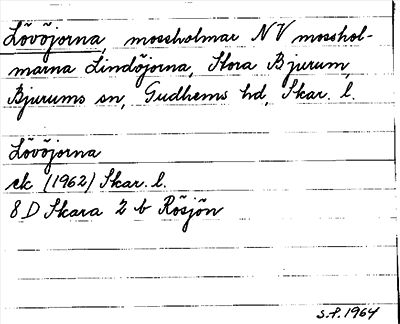 Lövöjorna, mossholmar NV mosshol-
marna Lindöjorna, Stora Bjurum,
Bjurums sn, Gudhems hd, Skar. l.
Lövöjorna
ek (1962) Skar. l.
8 D Skara 2 b Rösjön
S.F. 1964